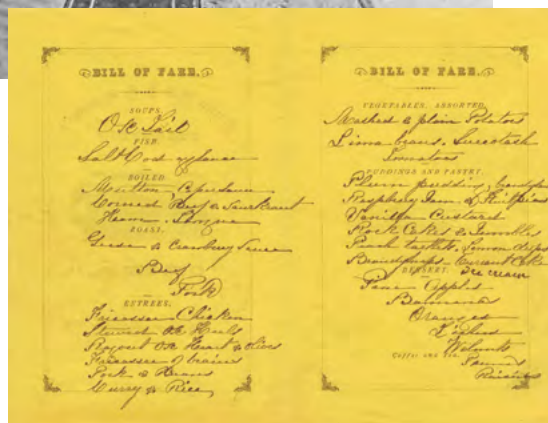 BILL OF FARE.
SOUPS.
Ox Tail
FISH.
Salt Cod
BOILED.
Mutton, Caper Sauce
Corned Beef & Saurkraut
Ham. Tongue
ROAST.
Geese & Cranberry Sauce
Beef
Pork
ENTREES.
Fricassee Chicken
Stewed Ox Heels
Ragout Ox Heart & Livers
Fricassee of brains
Pork & Beans
Curry & Rice
BILL OF FARE.
VEGETABLES, ASSORTED.
Mashed & plain Potatoes
Lima beans. Succotash
Tomatoes
PUDDINGS AND PASTRY.
Plum pudding,
Raspberry Jam &
Vanilla Custard
Rock Cakes & Jumbles
Lemon
Currant Cake
DESSERT. Ice cream
Pine Apples
Banana
Oranges
Walnuts
Coffee and
Raisins